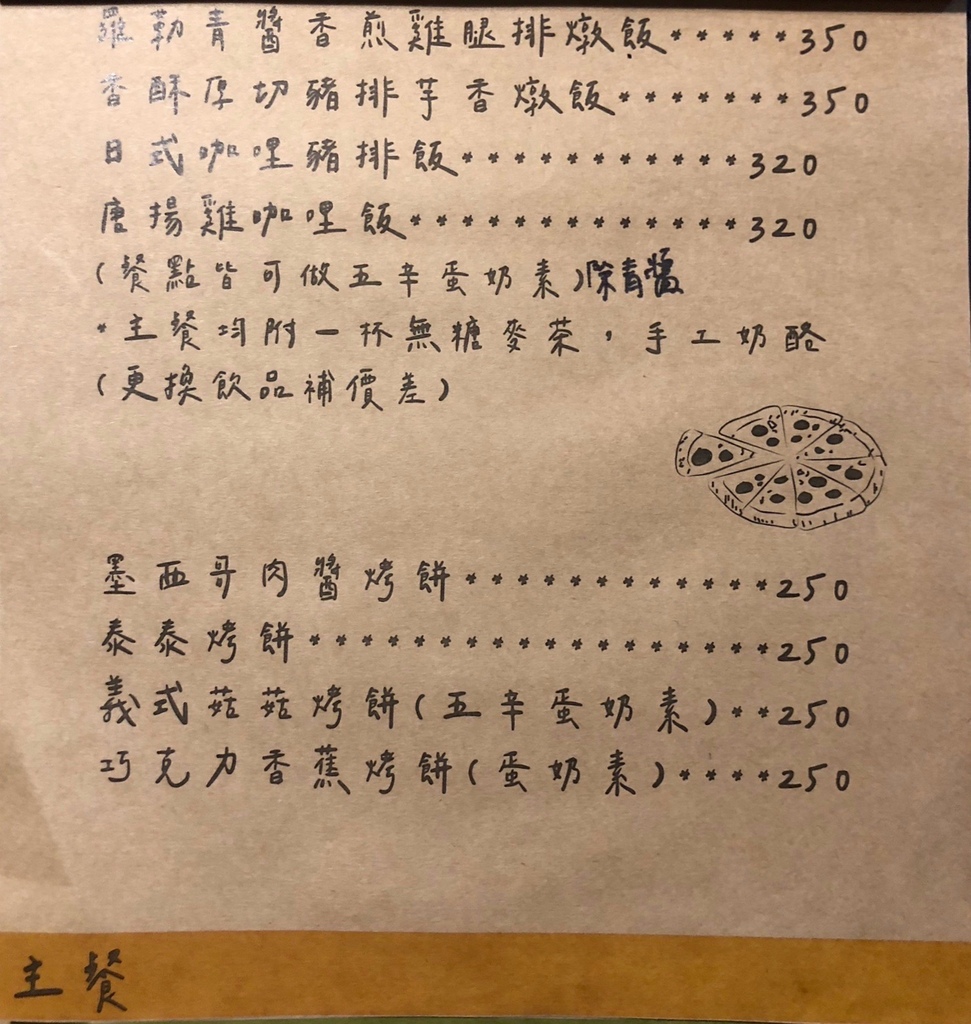 羅勒青醬香煎雞腿排燉飯*****350
香酥厚切豬排芋香燉飯*******350
日式咖哩豬排飯***********320
唐揚雞咖哩飯*************320
(餐點皆可做五辛蛋奶素)除青醬
*主餐均附一杯無糖麥茶，手工奶酪
(更換飲品補價差)
墨西哥肉醬烤餅************250
泰泰烤餅******************250
義式菇菇烤餅(五辛蛋奶素)**250
巧克力香蕉烤餅(蛋奶素)****250
主餐